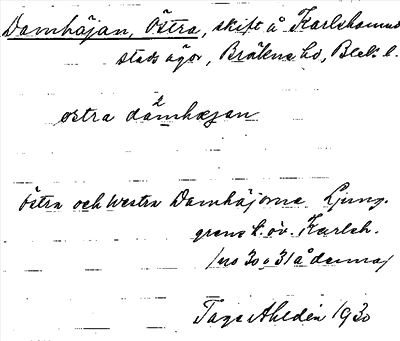 Damhäjan, Östra, skift å Karlshamns
stads ägor, Bräkne hd, Blek. l.
östra dämhæjan
2
Östra och Westra Damhäjorna Ljung-
grens k. öv. Karlsh.
(no 30 o 31 å denna)
Tage Ahldén 1930